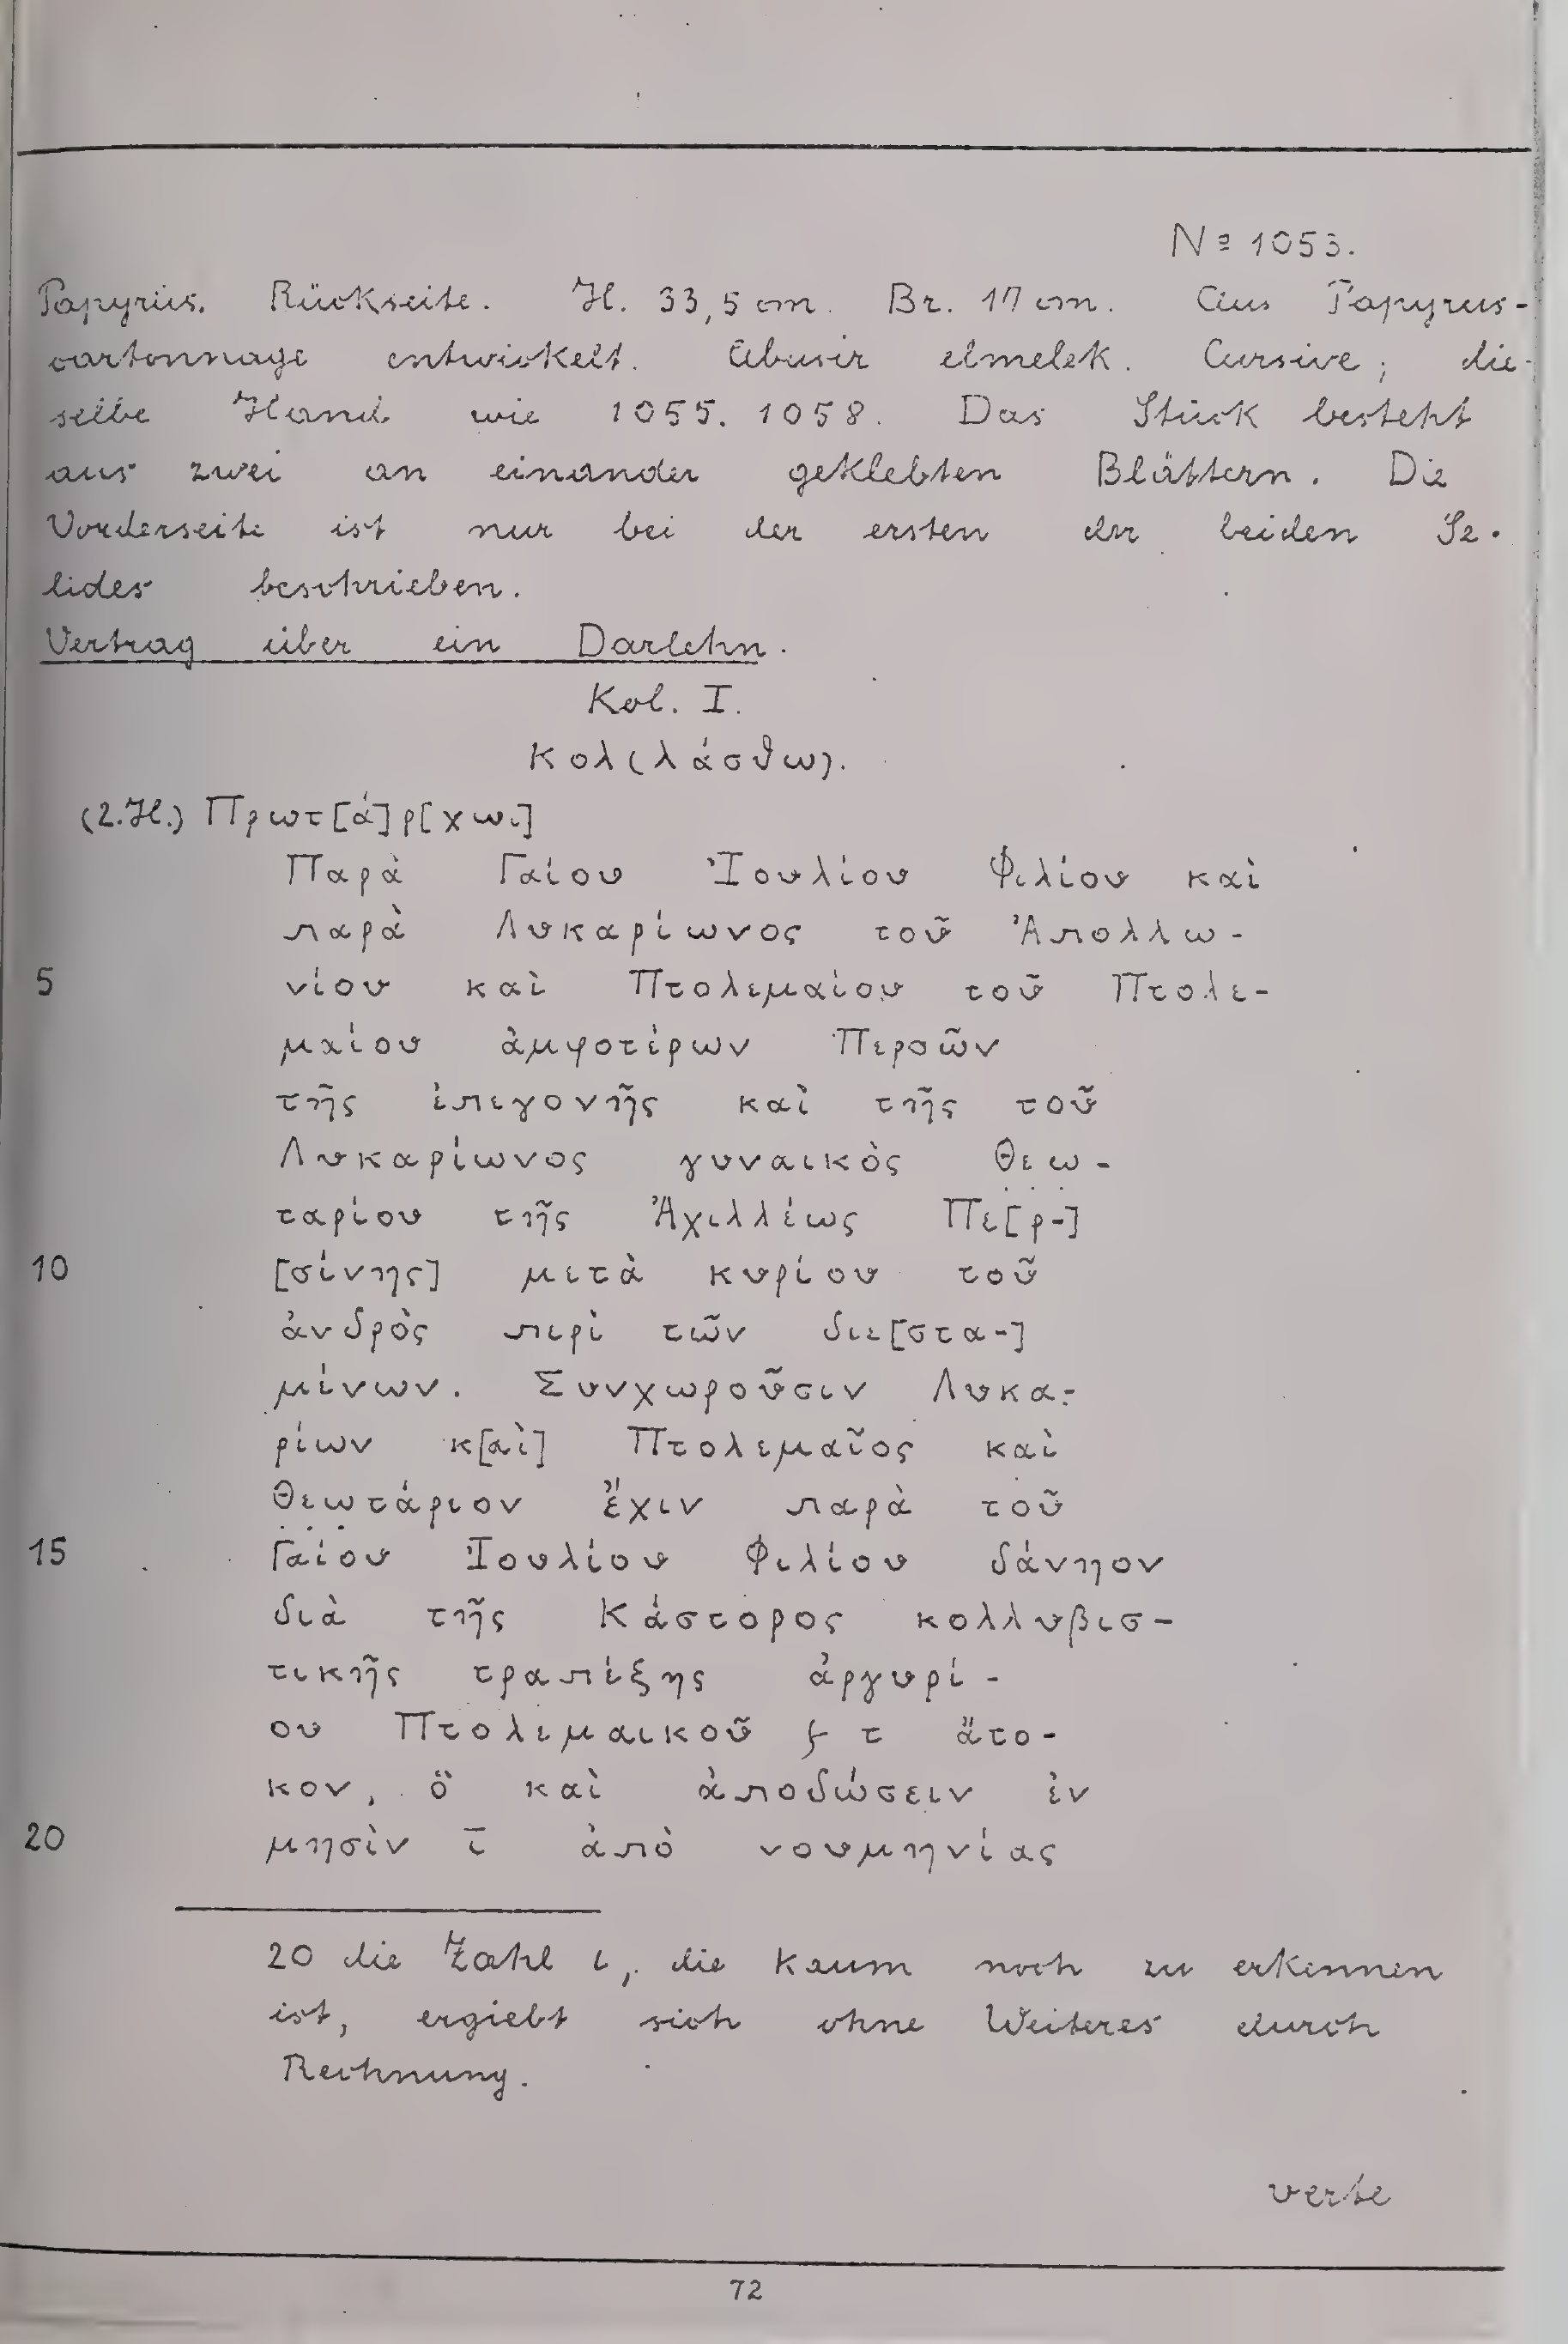 Nº 1053.
Papyrus. Rückseite. H. 33,5 cm. Br. 17 cm. Aus Papyrus-
cartonnage entwickelt. Abusir elmelek. Cursive; die-
selbe Hand wie 1055. 1058. Das Stück besteht
aus zwei an einander geklebten Blättern. Die
Vorderseite ist nur bei der ersten der beiden Se-
lides beschrieben.
Vertrag über ein Darlehn.
Kol. I.
Κολ(λάσθω).
(2.H.) Πρωτ[ά]ρ[χωι]
Παρὰ Γαίου Ἰουλίου Φιλίου καὶ
παρὰ Λυκαρίωνος τοῦ Ἀπολλω-
5 νίου καὶ Πτολεμαίου τοῦ Πτολε-
μαίου ἀμφοτέρων Περσῶν
τῆς ἐπιγονῆς καὶ τῆς τοῦ
Λυκαρίωνος γυναικὸς Θεω-
ταρίου τῆς Ἀχιλλέως Πε[ρ-]
10 [σίνης] μετὰ κυρίου τοῦ
ἀνδρὸς περὶ τῶν διε[στα-]
μένων. Συνχωροῦσιν Λυκα-
ρίων κ[αὶ] Πτολεμαῖος καὶ
Θεωτάριον ἔχιν παρὰ τοῦ
15 Γαίου Ἰουλίου Φιλίου δάνηον
διὰ τῆς Κάστορος κολλυβισ-
τικῆς τραπέζης ἀργυρί-
ου Πτολεμαικοῦ ʃ τ ἄτο-
κον, ὃ καὶ ἀποδώσειν ἐν
20 μησὶν ῑ ἀπὸ νουμηνίας
20 die Zahl ι, die kaum noch zu erkennen
ist, ergiebt sich ohne Weiteres durch
Rechnung.
verte
72